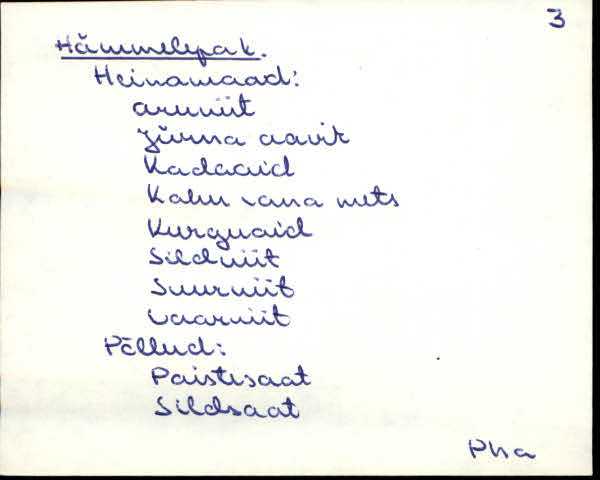 3
Hämmelepak.
Heinamaad:
aruniit
Jürna aavik
Kadaaid
Kalm vana mets
Kurguaid
Sildniit
Suurniit
Vaarniit
Põllud:
Paistesaat
Sildsaat
Pha